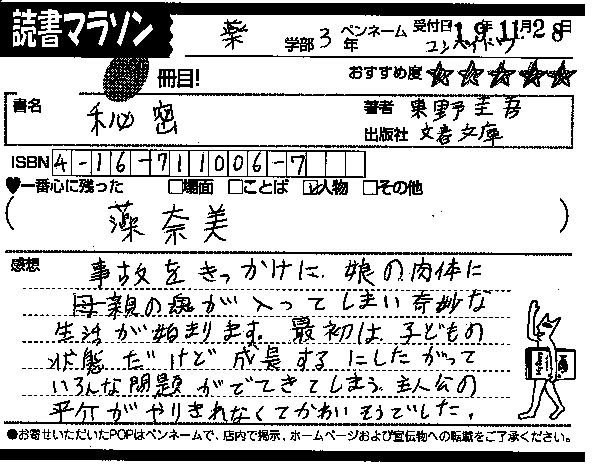 読書マラソン
薬 学部 3年 ペンネーム コンペイトウ 受付日 19年11月28日
冊目! おすすめ度 ☆☆☆☆☆
書名 秘密 著者 東野圭吾
出版社 文春文庫
ISBN 4-16-711006-7
♥一番心に残った □場面 □ことば ☑人物 □その他
(藻奈美)
感想 事故をきっかけに、娘の肉体に
母親の魂が入ってしまい奇妙な
生活が始まります。最初は、子どもの
状態だけど成長するにしたがって
いろんな問題がでてきてしまう。主人公の
平介がやりきれなくてかわいそうでした。
●お寄せいただいたPOPはペンネームで、店内で掲示、ホームページおよび宣伝物への転載をご了承ください。